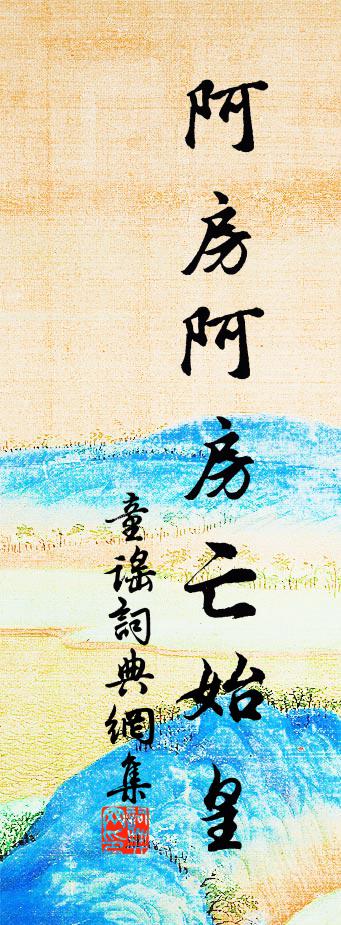 阿房阿房亡始皇
童謠詞典網集